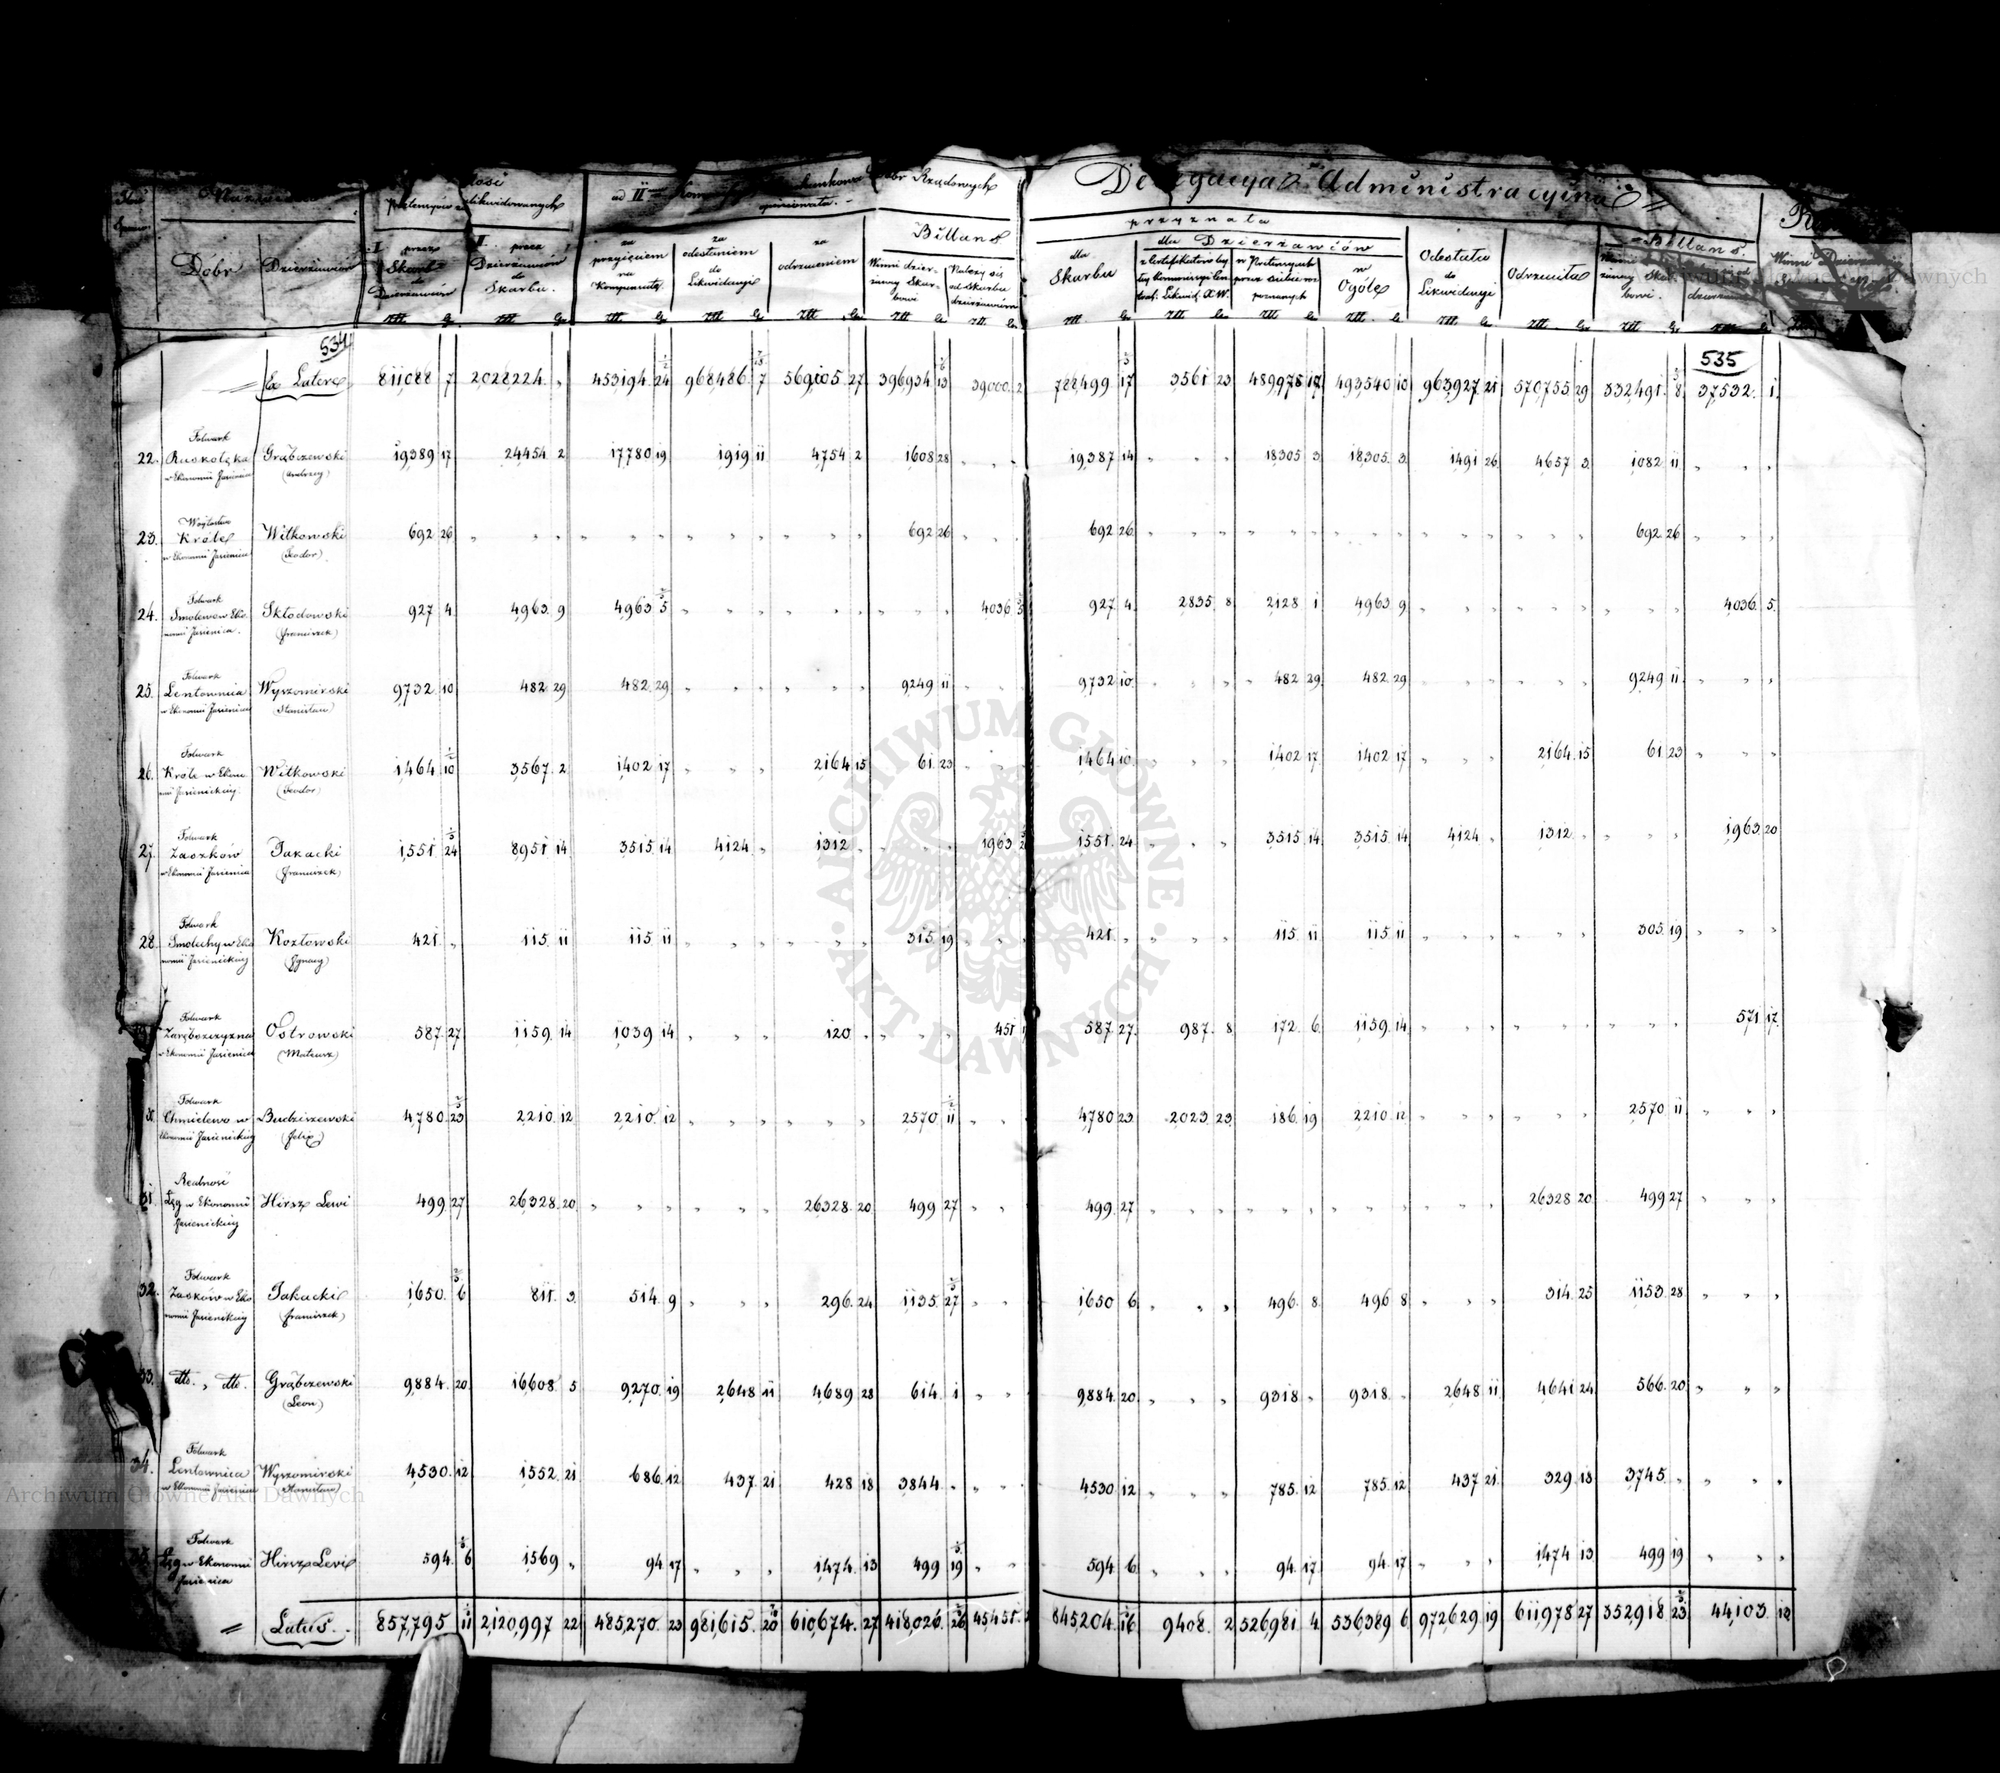 Dobr
Dzierżawców
przez Skarb do Dzierżawców
przez Dzierżawców do Skarbu.
za przyjęciem na Kompensatę
za odesłaniem do Likwidacyi
za odrzuceniem
Billans
Winni dzierżawcy Skarbowi
Należy się od Skarbu dzierżawcom
Delegacya Administracyina
przyznała
dla Skarbu
dla Dzierżawców
w Ogóle
Odesłała do Likwidacyi
Odrzuciła
Billans.
Złł Gr
534
535
Ex Latere 811,088 7 2,028,224 „ 453,194 24 968,486 7 569,105 27 396,934 13 39,000 2 788,499 17 3561 23 489,978 17 493,540 10 963,927 21 570,755 29 332,491 8 37,532 1
22. Folwark Ruskołęka w Ekonomii Jasienica Grąbczewski (Andrzej) 19,389 17 24,454 2 17,780 19 1919 11 4,754 2 1608 28 „ „ 19,387 14 „ „ 18,305 3 18,305 3 1491 26 4,657 3 1,082 11 „ „
23. Wójtostwo Króle w Ekonomii Jasienica Witkowski (Teodor) 692 26 „ „ „ „ „ „ „ „ 692 26 „ „ 692 26 „ „ „ „ „ „ „ „ „ „ 692 26 „ „
24. Folwark Smolewo w Ekonomii Jasienica. Skłodowski (Franciszek) 927 4 4,963 9 4,963 5 „ „ „ „ „ „ 4036 5 927 4 2835 8 2128 1 4963 9 „ „ „ „ „ „ 4036 5
25. Folwark Lentownica w Ekonomii Jasienica Wyszomirski (Stanisław) 9,732 10 482 29 482 29 „ „ „ „ 9249 11 „ „ 9,732 10 „ „ 482 29 482 29 „ „ „ „ 9249 11 „ „
26. Folwark Króle w Ekonomii Jasienickiej Witkowski (Teodor) 1464 10 3,567 2 1402 17 „ „ 2164 15 61 23 „ „ 1464 10 „ „ 1402 17 1402 17 „ „ 2164 15 61 23 „ „
27. Folwark Zaszków w Ekonomii Jasienica Zakacki (Franciszek) 1,551 24 8951 14 3515 14 4124 „ 1312 „ „ „ 1963 1551 24 „ „ 3515 14 3515 14 4124 „ 1312 „ „ „ 1963 20
28. Folwark Smoluchy w Ekonomii Jasienickiej Kozłowski (Ignacy) 421 „ 115 11 115 11 „ „ „ „ 315 19 „ „ 421 „ „ „ 115 11 115 11 „ „ „ „ 305 19 „ „
Folwark Zarębszczyzna w Ekonomii Jasienica Ostrowski (Mateusz) 587 27 1159 14 1039 14 „ „ 120 „ „ „ 451 587 27 987 8 172 6 1159 14 „ „ „ „ „ „ 571 17
Folwark Chmielewo w Ekonomii Jasienickiej Budziszewski (Felix) 4,780 23 2210 12 2,210 12 „ „ „ „ 2570 11 „ „ 4780 23 2023 23 186 19 2210 12 „ „ „ „ 2570 11 „ „
31. Realność Łęg w Ekonomii Jasienickiej Hirsz Lewi 499 27 26,328 20 „ „ „ „ 26328 20 499 27 „ „ 499 27 „ „ „ „ „ „ „ „ 26328 20 499 27 „ „
32. Folwark Zaszków w Ekonomii Jasienickiej Zakacki (Franciszek) 1,650 6 811 3 514 9 „ „ 296 24 1135 27 „ „ 1650 6 „ „ 496 8 496 8 „ „ 314 25 1153 28 „ „
33. dtto „ dtto Grąbczewski (Leon) 9884 20 16608 5 9270 19 2648 11 4689 28 614 1 „ „ 9,884 20 „ „ 9318 „ 9318 „ 2648 11 4641 24 566 20 „ „
34. Folwark Lentownica w Ekonomii Jasienica Wyszomirski (Stanisław) 4,530 12 1552 21 686 12 437 21 428 18 3844 „ „ „ 4530 12 „ „ 785 12 785 12 437 21 329 18 3745 „ „ „
35. Folwark Łęg w Ekonomii Jasienica Hirsz Levi 594 6 1569 „ 94 17 „ „ 1474 13 499 19 „ „ 594 6 „ „ 94 17 94 17 „ „ 1474 13 499 19 „ „
Latus. 857,795 11 2,120,997 22 485,270 23 981,615 20 610,674 27 418,026 26 45,451 845,204 16 9408 2 526,981 4 536,389 6 972,629 19 611,978 27 352,918 23 44,103 12
ARCHIWUM GŁÓWNE AKT DAWNYCH
Archiwum Główne Akt Dawnych